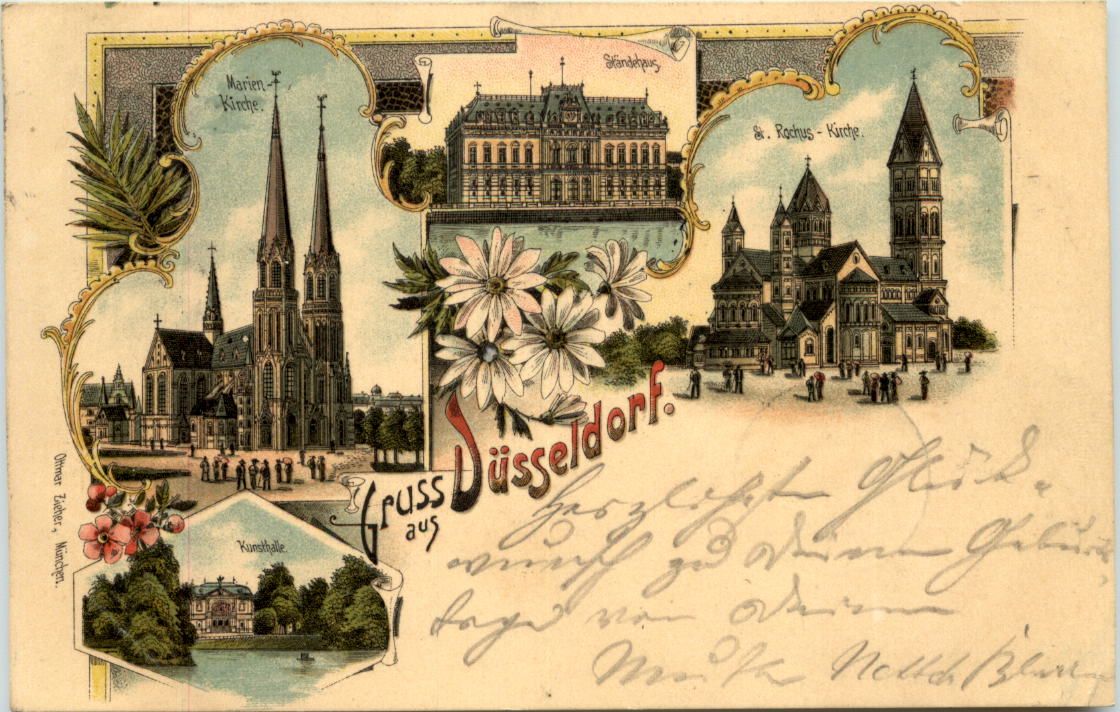 Marien-
Kirche.
Ständehaus.
St. Rochus-Kirche.
Gruss
aus
Düsseldorf.
Kunsthalle.
Ottmar Zieher, München.
Herzlichsten Glück-
wunsch zu deinem Geburts
tage von deiner
Mutter